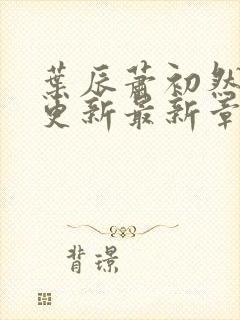 葉辰蕭初然
更新最新章
背璟